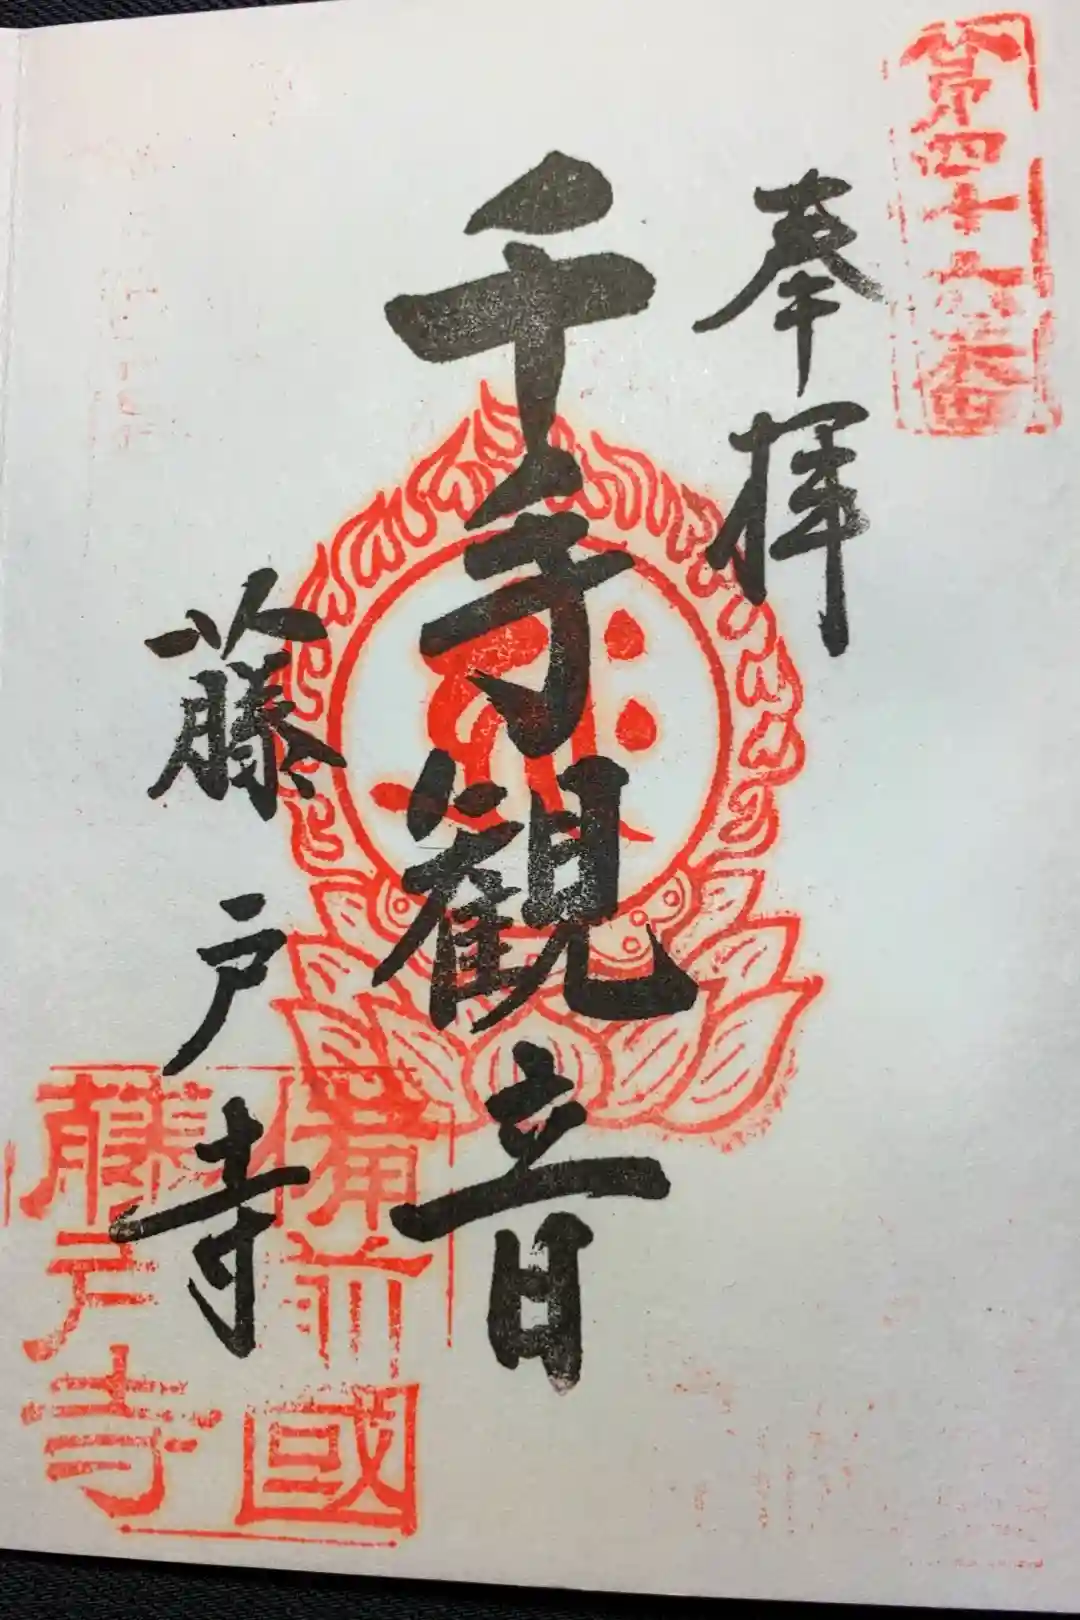 第四十 番
奉拝
千手観音
藤戸寺
備前國
藤戸寺